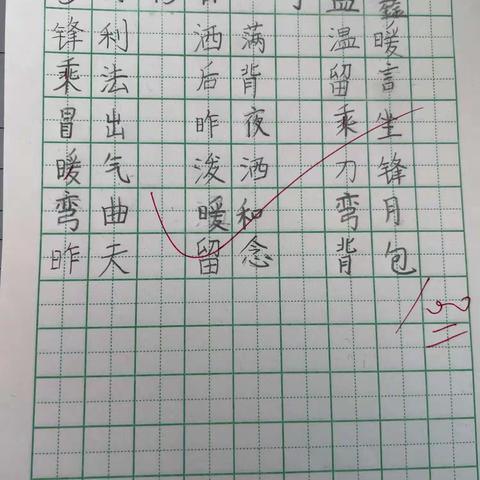 锋利 洒满 温暖
乘法 后背 留言
冒出 昨夜 乘坐
暖气 洒 力锋
弯曲 暖和 弯月
昨天 留念 背包
100